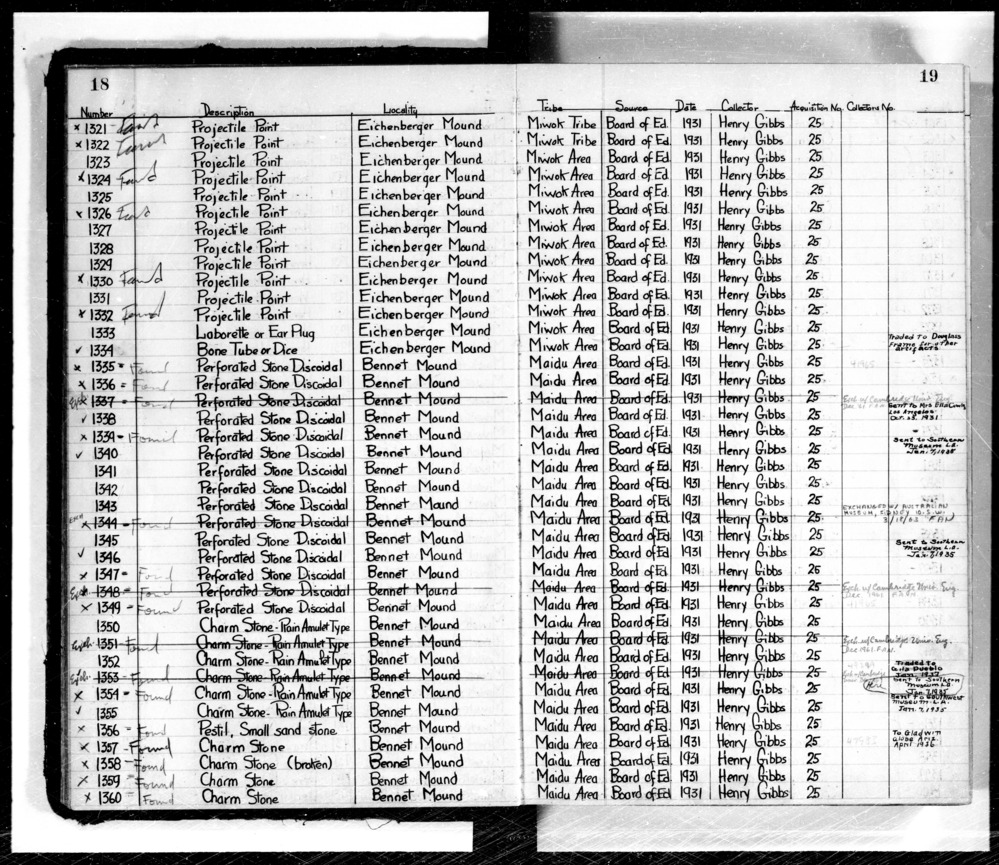 18
19
Number Description Locality Tribe Source Date Collector Acquisition No. Collectors No.
x 1321 Found Projectile Point Eichenberger Mound Miwok Tribe Board of Ed. 1931 Henry Gibbs 25
x 1322 Found Projectile Point Eichenberger Mound Miwok Tribe Board of Ed. 1931 Henry Gibbs 25
1323 Projectile Point Eichenberger Mound Miwok Area Board of Ed. 1931 Henry Gibbs 25
x 1324 Found Projectile Point Eichenberger Mound Miwok Area Board of Ed. 1931 Henry Gibbs 25
1325 Projectile Point Eichenberger Mound Miwok Area Board of Ed. 1931 Henry Gibbs 25
x 1326 Found Projectile Point Eichenberger Mound Miwok Area Board of Ed. 1931 Henry Gibbs 25
1327 Projectile Point Eichenberger Mound Miwok Area Board of Ed. 1931 Henry Gibbs 25
1328 Projectile Point Eichenberger Mound Miwok Area Board of Ed. 1931 Henry Gibbs 25
1329 Projectile Point Eichenberger Mound Miwok Area Board of Ed. 1931 Henry Gibbs 25
x 1330 Found Projectile Point Eichenberger Mound Miwok Area Board of Ed. 1931 Henry Gibbs 25
1331 Projectile Point Eichenberger Mound Miwok Area Board of Ed. 1931 Henry Gibbs 25
x 1332 Found Projectile Point Eichenberger Mound Miwok Area Board of Ed. 1931 Henry Gibbs 25
1333 Laborette or Ear Plug Eichenberger Mound Miwok Area Board of Ed. 1931 Henry Gibbs 25
✓ 1334 Bone Tube or Dice Eichenberger Mound Miwok Area Board of Ed. 1931 Henry Gibbs 25 Traded To Douglass
Frame for other
artifacts
x 1335 = Found Perforated Stone Discoidal Bennet Mound Maidu Area Board of Ed. 1931 Henry Gibbs 25
x 1336 = Found Perforated Stone Discoidal Bennet Mound Maidu Area Board of Ed. 1931 Henry Gibbs 25
Exch. 1337 - Found Perforated Stone Discoidal Bennet Mound Maidu Area Board of Ed. 1931 Henry Gibbs 25 Exch w/ Cambridge Univ. Eng.
✓ 1338 Perforated Stone Discoidal Bennet Mound Maidu Area Board of Ed. 1931 Henry Gibbs 25 Sent to Mrs
Los Angeles
Oct. 1931
x 1339 - Found Perforated Stone Discoidal Bennet Mound Maidu Area Board of Ed. 1931 Henry Gibbs 25
✓ 1340 Perforated Stone Discoidal Bennet Mound Maidu Area Board of Ed. 1931 Henry Gibbs 25 Sent to Southern
Museum L.A.
Jan. 7, 1935
1341 Perforated Stone Discoidal Bennet Mound Maidu Area Board of Ed. 1931 Henry Gibbs 25
1342 Perforated Stone Discoidal Bennet Mound Maidu Area Board of Ed. 1931 Henry Gibbs 25
1343 Perforated Stone Discoidal Bennet Mound Maidu Area Board of Ed. 1931 Henry Gibbs 25
Exch x 1344 - Found Perforated Stone Discoidal Bennet Mound Maidu Area Board of Ed. 1931 Henry Gibbs 25 EXCHANGED W/ AUSTRALIAN
MUSEUM, SIDNEY N.S.W.
FAN
1345 Perforated Stone Discoidal Bennet Mound Maidu Area Board of Ed. 1931 Henry Gibbs 25
✓ 1346 Perforated Stone Discoidal Bennet Mound Maidu Area Board of Ed. 1931 Henry Gibbs 25 Sent to Southern
Museum L.A.
Jan. 7, 1935
x 1347 = Found Perforated Stone Discoidal Bennet Mound Maidu Area Board of Ed. 1931 Henry Gibbs 25
Exch. 1348 - Found Perforated Stone Discoidal Bennet Mound Maidu Area Board of Ed. 1931 Henry Gibbs 25 Exch w/ Cambridge Univ. Eng.
Dec 1961
x 1349 = Found Perforated Stone Discoidal Bennet Mound Maidu Area Board of Ed. 1931 Henry Gibbs 25
1350 Charm Stone - Rain Amulet Type Bennet Mound Maidu Area Board of Ed. 1931 Henry Gibbs 25
Exch. 1351 - Found Charm Stone - Rain Amulet Type Bennet Mound Maidu Area Board of Ed. 1931 Henry Gibbs 25 Exch. w/ Cambridge Univ. Eng.
Dec 1961 F.A.N.
1352 Charm Stone - Rain Amulet Type Bennet Mound Maidu Area Board of Ed. 1931 Henry Gibbs 25 Traded to
Gila Pueblo
Exch. 1353 - Found Charm Stone - Rain Amulet Type Bennet Mound Maidu Area Board of Ed. 1931 Henry Gibbs 25
x 1354 = Found Charm Stone - Rain Amulet Type Bennet Mound Maidu Area Board of Ed. 1931 Henry Gibbs 25 Sent to Southern
Museum L.A.
Jan. 7, 1935
✓ 1355 Charm Stone - Rain Amulet Type Bennet Mound Maidu Area Board of Ed. 1931 Henry Gibbs 25 Sent to Southwest
Museum L.A.
Jan. 7, 1935
x 1356 = Found Pestil, Small sand stone Bennet Mound Maidu Area Board of Ed. 1931 Henry Gibbs 25
x 1357 - Found Charm Stone Bennet Mound Maidu Area Board of Ed. 1931 Henry Gibbs 25 To Gladwin
Globe Ariz
April 1936
x 1358 - Found Charm Stone (broken) Bennet Mound Maidu Area Board of Ed. 1931 Henry Gibbs 25
x 1359 = Found Charm Stone Bennet Mound Maidu Area Board of Ed. 1931 Henry Gibbs 25
x 1360 = Found Charm Stone Bennet Mound Maidu Area Board of Ed. 1931 Henry Gibbs 25